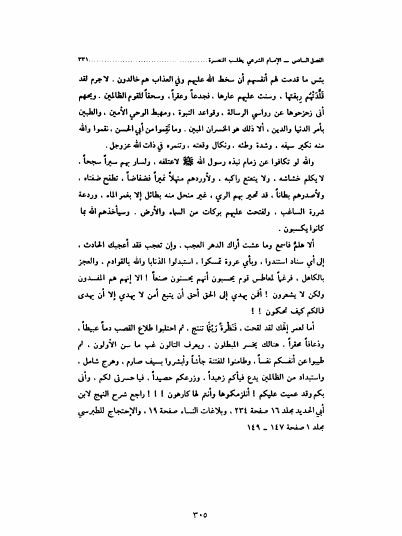 الفصل السادس ــ الإمام الشرعي يطلب النصرة ........................ ٣٣١
بئس ما قدمت لهم أنفسهم أن سخط الله عليهم وفي العذاب هم خالدون . لا جرم لقد
قَلَّدْتُهُم رِبقتها ، وسنت عليهم عارها ، فجدعاً وعقراً ، وسحقاً للقوم الظالمين . ويحهم
أنى زحزحوها عن رواسي الرسالة ، وقواعد النبوة ، ومهبط الوحي الأمين ، والطبين
بأمر الدنيا والدين ، ألا ذلك هو الخسران المبين . وما نقموا من أبي الحسن ، نقموا والله
منه نكير سيفه ، وشدة وطئه ، ونكال وقعته ، وتنمره في ذات الله عزوجل .
والله لو تكافوا عن زمام نبذه رسول الله ﷺ لاعتلقه ، ولسار بهم سيراً سجحاً ،
لا يكلم خشاشه ، ولا يتعتع راكبه ، ولأوردهم منهلاً نميراً فضفاضاً ، تطفح ضفتاه ،
ولأصدرهم بطاناً ، قد تحير بهم الري ، غير متحل منه بطائل إلا بغمر الماء ، وردعة
شررة الساغب ، ولفتحت عليهم بركات من السماء والأرض . وسيأخذهم الله بما
كانوا يكسبون .
ألا هلمّ فاسمع وما عشت أراك الدهر العجب . وإن تعجب فقد أعجبك الحادث ،
إلى أي سناد استندوا ، وبأي عروة تمسكوا ، استبدلوا الذنابا والله بالقوادم ، والعجز
بالكاهل ، فرغماً لمعاطس قوم يحسبون أنهم يحسنون صنعاً ! ألا إنهم هم المفسدون
ولكن لا يشعرون ! أفمن يهدي إلى الحق أحق أن يتبع أمن لا يهدي إلا أن يهدى
فمالكم كيف تحكون ! !
أما لعمر إلهك لقد لقحت ، فَنَظْرةً رَيْثَما تنتج ، ثم احتلبوا طلاع القعب دماً عبيطاً ،
وذعافاً ممقراً . هنالك يخسر المبطلون . ويعرف التالون غب ما سن الأولون . ثم
طيبوا عن أنفسكم نفساً ، وطامنوا للفتنة جأشاً وأبشروا بسيف صارم ، وهرج شامل ،
واستبداد من الظالمين يدع فيأكم زهيداً ، وزرعكم حصيداً ، فيا حسرتى لكم ، وأنى
بكم وقد عميت عليكم ! أنلزمكموها وأنتم لها كارهون ! ! ! راجع شرح النهج لابن
أبي الحديد مجلد ١٦ صفحة ٢٣٤ ، وبلاغات النساء صفحة ١٩ ، والإحتجاج للطبرسي
مجلد ١ صفحة ١٤٧ ــ ١٤٩
٣٠٥